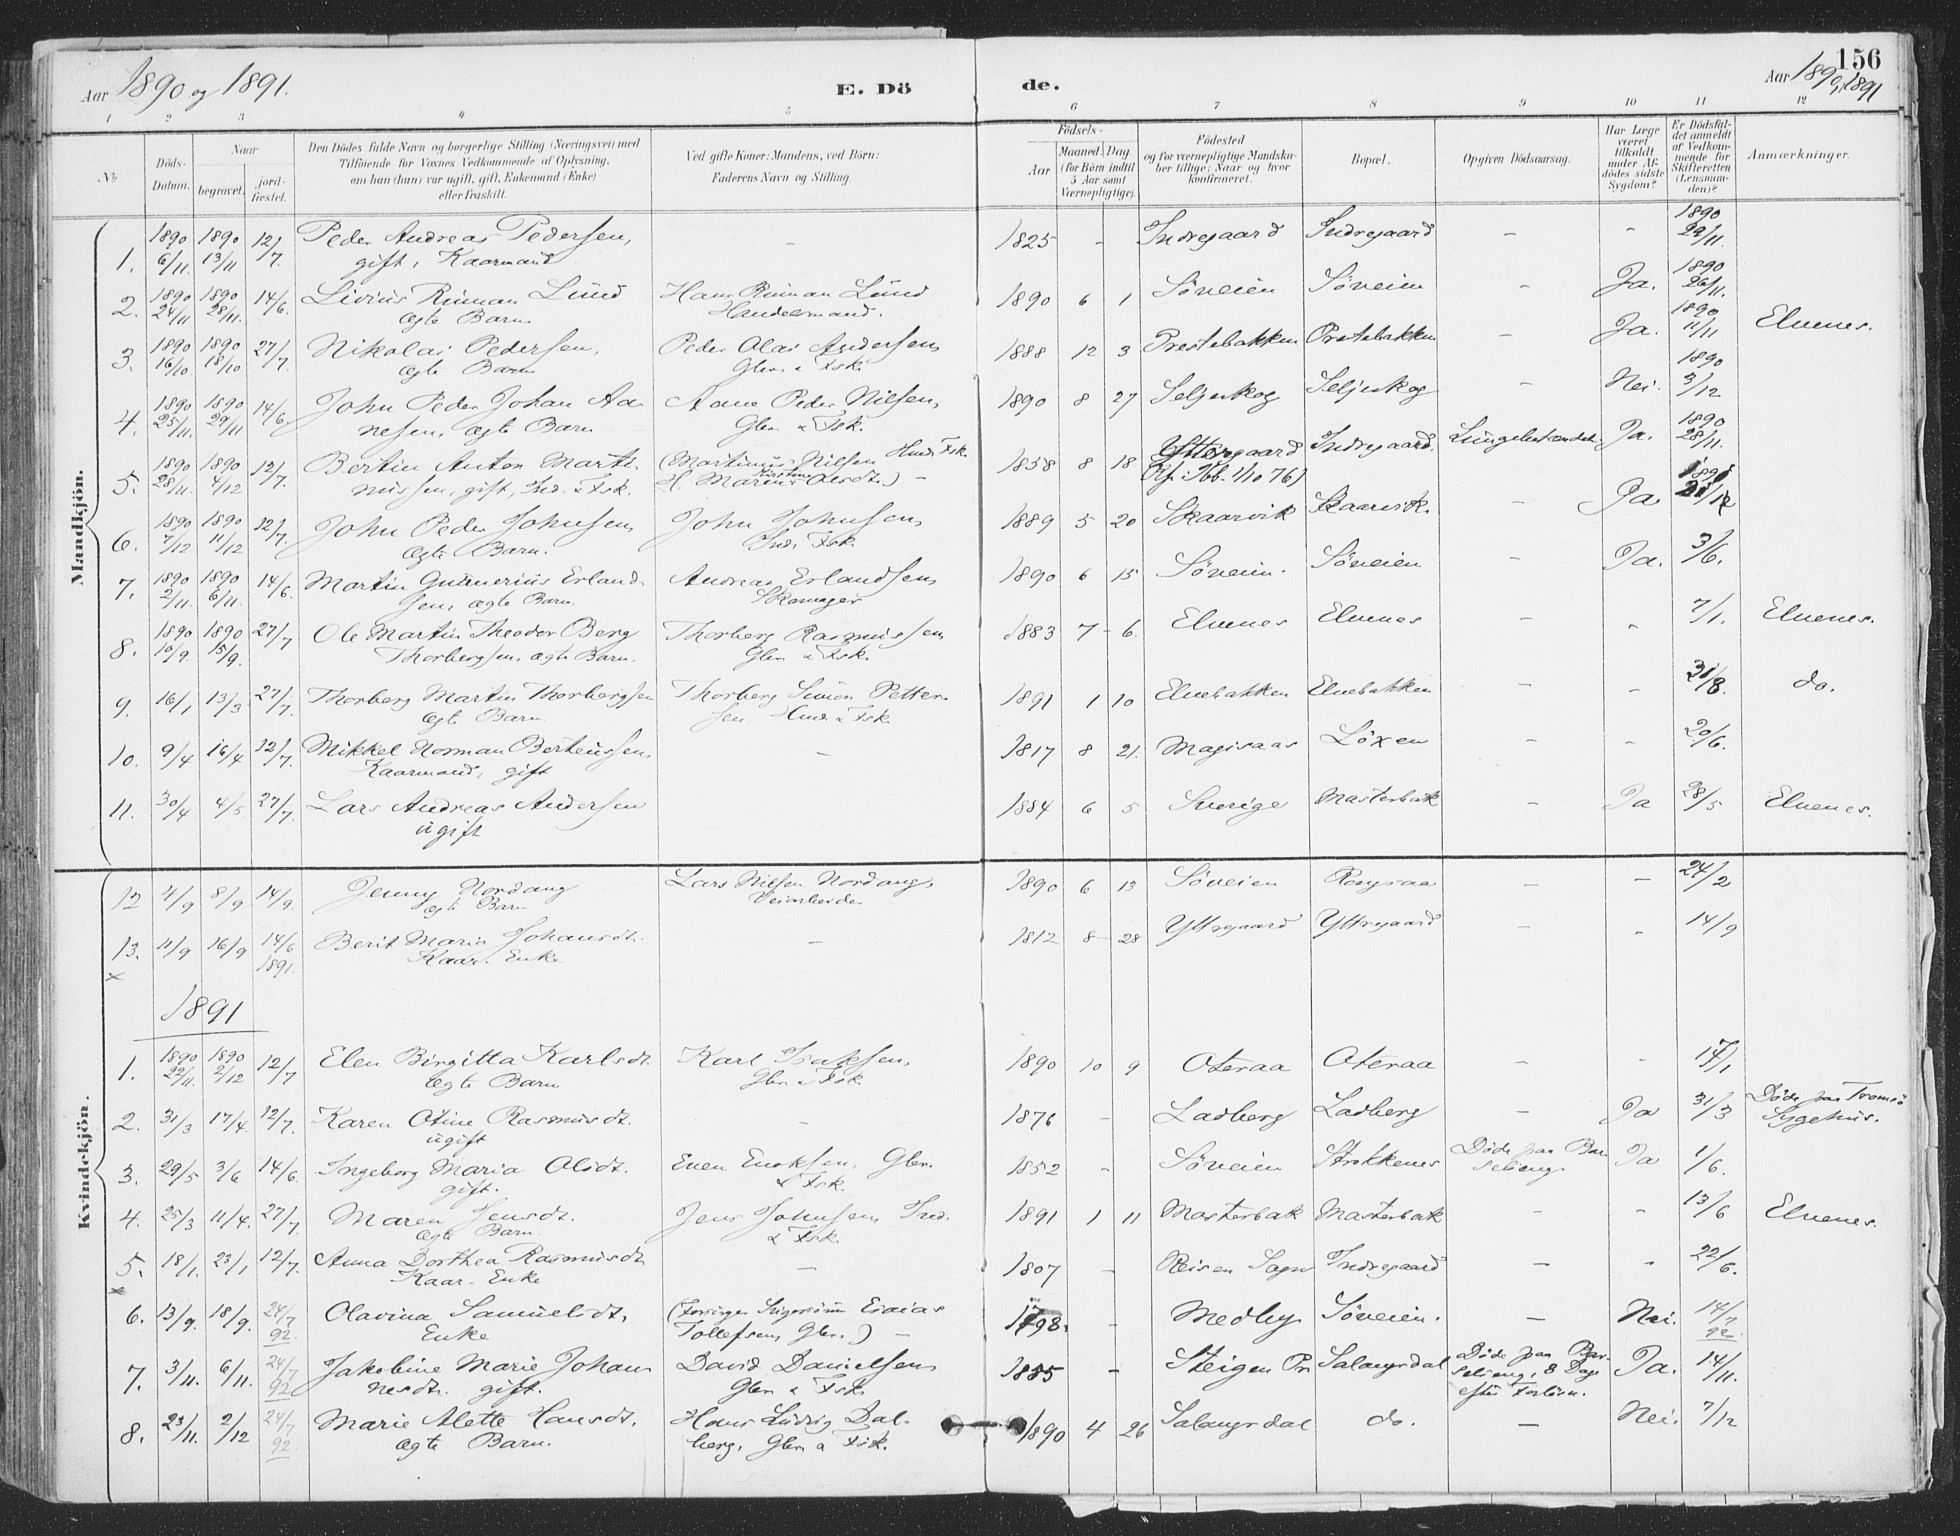 Aar 1890 og 1891.
E. Dö
de.
Aar 1890, 1891
156
1 2 3 4 5 6 7 8 9 10 11 12
No
Döds-Datum.
Naar
begravet.
jord-fæstet.
Den Dödes fulde Navn og borgerlige Stilling (Næringsvei) med
Tilföiende for Voxnes Vedkommende af Oplysning,
om han (hun) var ugift, gift, Enkemand (Enke)
eller fraskilt.
Ved gifte Koner: Mandens, ved Börn:
Faderens Navn og Stilling.
Födsels-
Aar
Maaned. Dag
(for Börn indtil
5 Aar samt
Værnepligtige).
Födested
og for værnepligtige Mandskaber tillige: Naar og hvor
konfirmeret.
Bopæl.
Opgiven Dödsaarsag.
Har Læge
været
tilkaldt
under Afdödes sidste
Sygdom?
Er Dödsfaldet anmeldt
af Vedkommende for
Skifteretten
(Lensmanden)?
Anmærkninger.
Mandkjön.
1. 1890 6/11. 1890 13/11 12/7. Peder Andreas Pedersen, gift, Kaarmand – 1825 – Indregaard Indregaard – – 1890 29/11.
2. 1890 24/11 1890 28/11. 14/6. Livius Riiman Lund ægte Barn Hans Riiman Lund Handelsmand. 1890 6 1 Söveien Söveien – Ja. 1890 26/11.
3. 1890 16/10 1890 18/10 27/7. Nikolai Pedersen, ægte Barn Peder Olai Andersen, Gbr. & Fsk. 1888 12 3 Prestebakken Prestebakken – Ja. 1890 11/11 Elvenes.
4. 1890 25/11. 1890 29/11 14/6. John Peder Johan Aanesen, ægte Barn Aane Peder Nilsen, Gbr. & Fsk. 1890 8 27 Seljeskog Seljeskog – Nei. 1890 3/12
5. 1890 28/11. 1890 4/12 12/7. Bertin Anton Martinussen, gift, Ind. & Fsk. (Martinus Nilsen Husm. Fsk. 1858 8 18 Yttregaard Indregaard. Lungebetændel. Ja. 1890 28/11.
6. 1890 7/12 1890 11/12 12/7. John Peder Johnsen, ægte Barn. John Johnsen, Ind. Fsk. 1889 5 20 Skaarvik Skaarvik. – Ja
7. 1890 2/11. 1890 6/11. 14/6. Martin Gunnerius Erlandsen, ægte Barn. Andreas Erlandsen, Skomager 1890 6 15 Söveien. Söveien – Ja. 3/6.
8. 1890 10/9. 1890 15/9. 27/7 Ole Martin Theodor Berg Thorbergsen, ægte Barn. Thorberg Rasmussen, Gbr. & Fsk. 1883 7 6. Elvenes Elvenes – 7/1. Elvenes.
9. 16/1 13/3 27/7. Thorberg Martin Thorbergsen ægte Barn. Thorberg Simon Pettersen, Husm. & Fsk. 1891 1 10 Elvebakken Elvebakken – – 31/8. do.
10. 9/4 16/4 12/7. Mikkel Norman Berteussen, Kaarmand, gift – 1817 8 21. Magisaas Löxen – – 20/6.
11. 30/4 4/5 27/7. Lars Andreas Andersen ugift 1884 6 5 Sverige Masterbak – Ja 28/5 Elvenes.
Kvindekjön.
12 4/9 8/9 14/9. Jenny Nordang ægte Barn Lars Nilsen Nordang, Veiarbeider 1890 6 13 Söveien – – 24/2
13. x 11/9 16/9 14/6 1891. Berit Maria Johansdt. Kaar. Enke – 1812 8 28 Yttregaard Yttregaard – – 14/9
1891
1. 1890 22/11. 1890 2/12 12/7 Elen Birgitta Karlsdt. ægte Barn Karl Isaksen, Gbr. & Fsk. 1890 10 9 Oteraa Oteraa – –
2. 31/3 17/4. 12/7. Karen Otine Rasmusdt. ugift – 1876 – Ladberg Ladberg – Ja 31/3 Döde paa Tromsö Sygehus.
3. 29/5 3/6 14/6. Ingeborg Maria Olsdt. gift. Even Enoksen, Gbr. & Fsk. 1852 – Söveien Strokkenes Döde paa Barselseng. Ja 1/6.
4. 25/3 11/4. 27/7. Maren Jensdt. ægte Barn. Jens Johnsen, Ind. & Fsk. 1891 1 11 Masterbak Masterbak – – 13/6 Elvenes.
5. x 18/1. 23/1 12/7. Anna Dorthea Rasmusdt. Kaar. Enke – 1807 – Reisen Sogn Indregaard – – 22/6.
6. 13/9. 18/9. 24/7 92. Olavina Samuelsdt. Enke Esaias Tollefsen, Gbr.) – 1798. – Medby Söveien. – Nei. 14/7 92.
7. 3/11. 6/11. 24/7 92 Jakobine Marie Johannesdt. gift. David Danielsen, Gbr. & Fsk. 1855 – Steigen Pr. Salangsdal Döde paa Barselseng, 8 Dage efter Forlösn. Ja. 14/11.
8. 23/11. 2/12 24/7 92. Marie Alette Hansdt. ægte Barn. Hans Ludvig Dalberg, Gbr. & Fsk. 1890 4 26 Salangsdal do. – Nei. 7/12